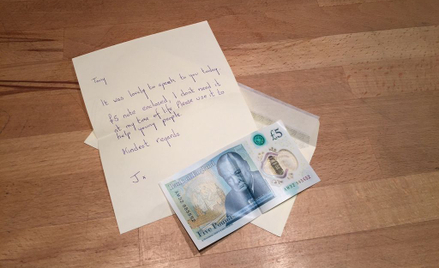 Tony
It was lovely to speak to you today
£5 note enclosed, I don't need it
at my time of life. Please use it to
help young people
Kindest regards
J x
£5
Five Pounds